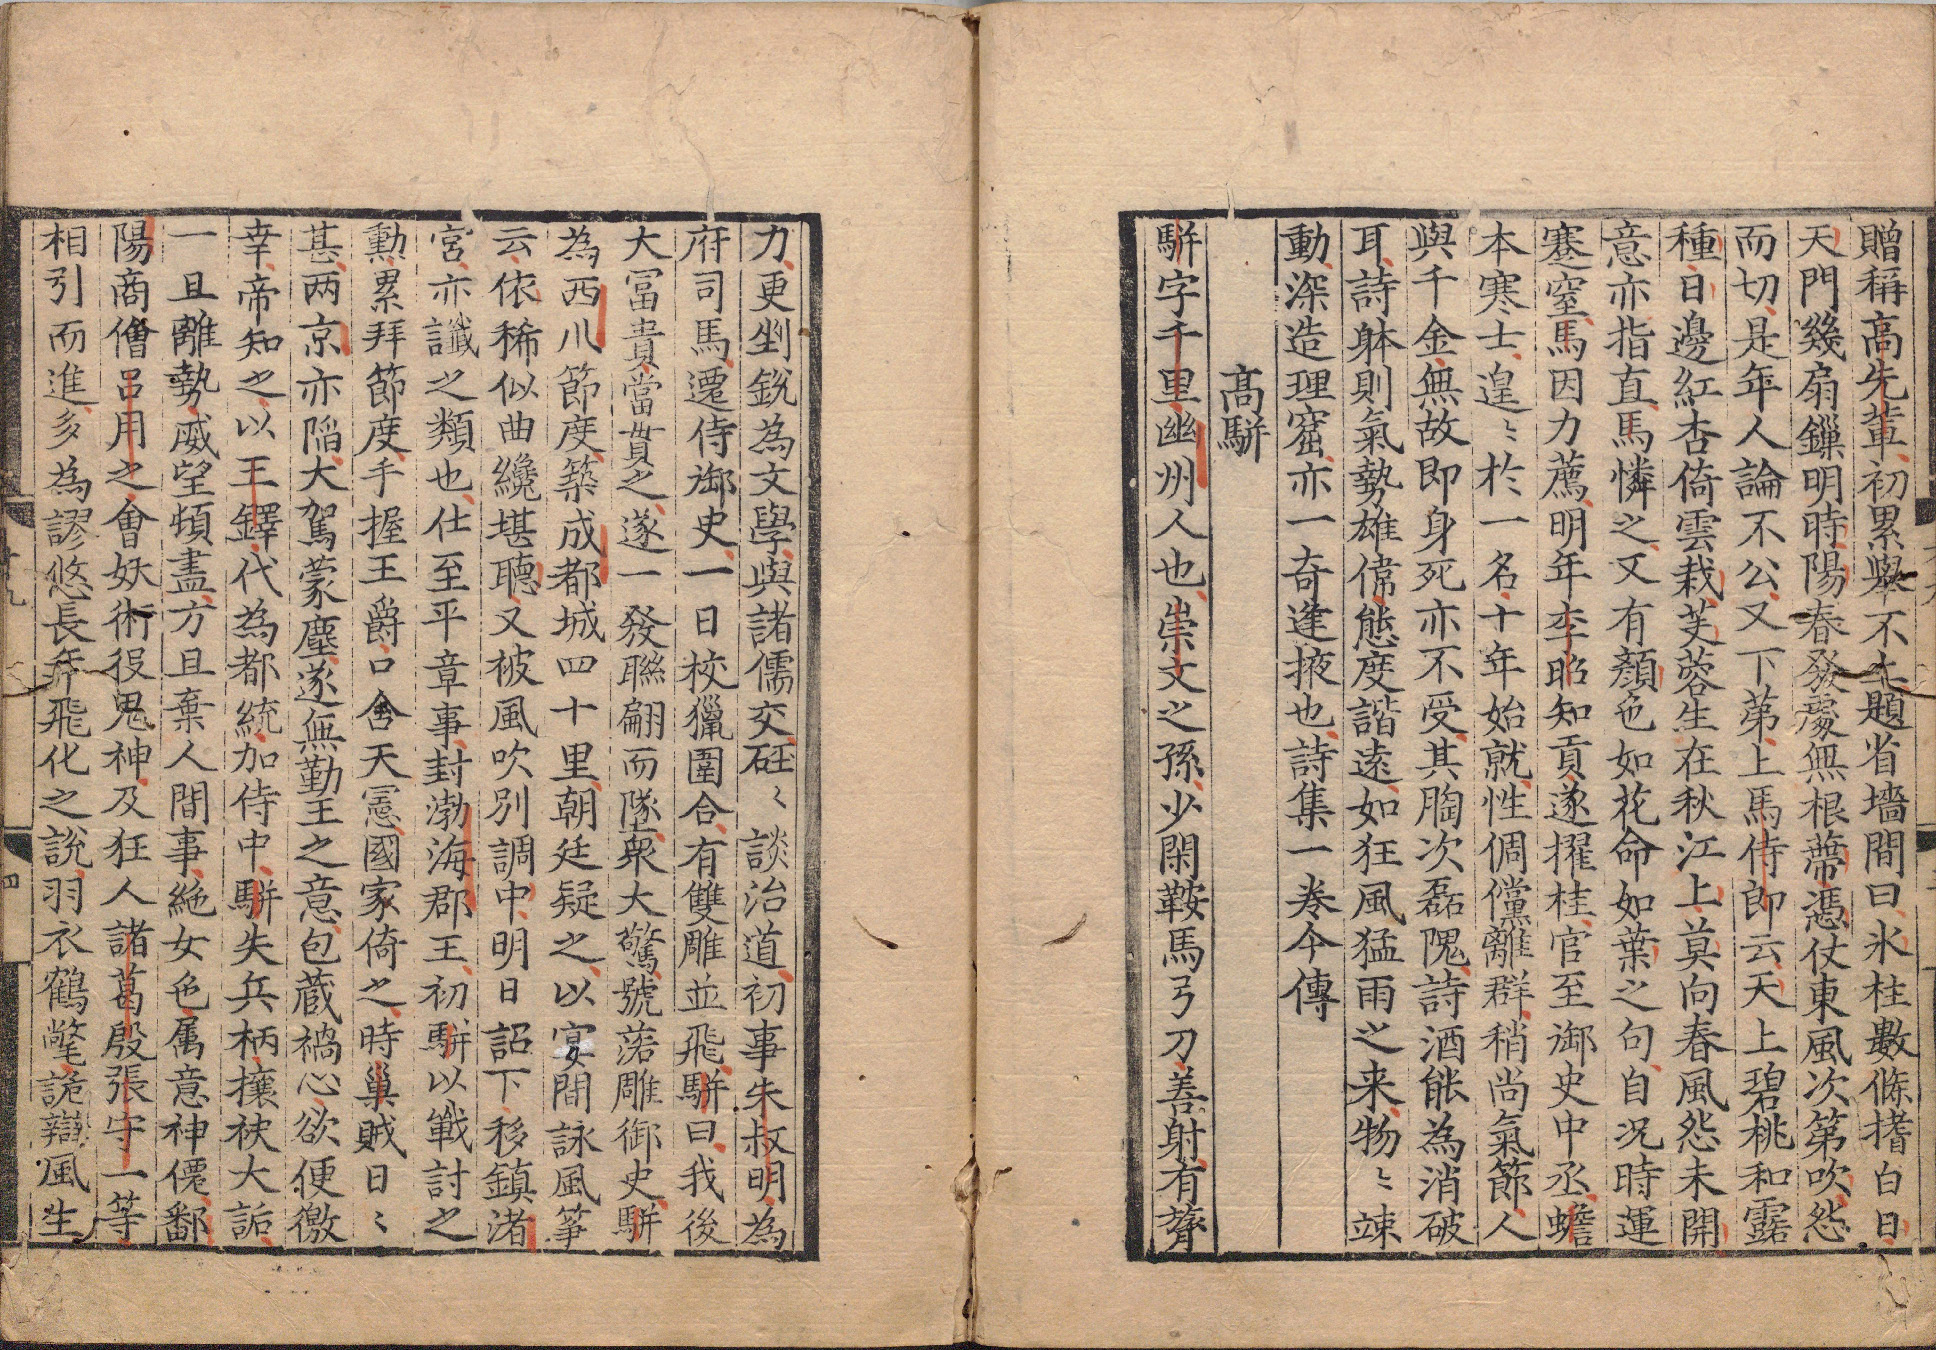 贈稱高先輩初累舉不上題省墻間曰氷柱數條搘白日
天門幾扇鏁明時陽春發處無根蔕憑仗東風次第吹怨
而切是年人論不公又下第上馬侍郎云天上碧桃和露
種日邊紅杏倚雲栽芙蓉生在秋江上莫向春風怨未開
意亦指直馬憐之又有顏色如花命如葉之句自況時運
蹇窒馬因力薦明年李昭知貢遂擢桂官至御史中丞蟾
本寒士遑〻於一名十年始就性倜儻離群稍尚氣節人
與千金無故即身死亦不受其胸次磊隗詩酒能為消破
耳詩躰則氣勢雄偉態度諧遠如狂風猛雨之来物〻竦
動深造理窟亦一奇逢掖也詩集一卷今傳
高駢
駢字千里幽州人也崇文之孫少閑鞍馬弓刀善射有膂
力更剉銳為文學與諸儒交硜〻談治道初事朱叔明為
府司馬遷侍御史一日校獵圍合有雙雕並飛駢曰我後
大冨貴當貫之遂一發聯翩而墜衆大驚號落雕御史駢
為西川節度築成都城四十里朝廷疑之以宴間詠風筝
云依稀似曲纔堪聽又被風吹別調中明日詔下移鎮渚
宮亦讖之類也仕至平章事封渤海郡王初駢以戰討之
勳累拜節度手握王爵口含天憲國家倚之時巢賊日〻
甚两京亦陥大駕蒙塵遂無勤王之意包蔵禍心欲便徼
幸帝知之以王鐸代為都統加侍中駢失兵柄攘袂大詬
一旦離勢威望頓盡方且棄人間事絶女色属意神僊鄱
陽商僧吕用之會妖術役鬼神及狂人諸葛殷張守一等
相引而進多為謬悠長年飛化之說羽衣鶴氅詭辯風生